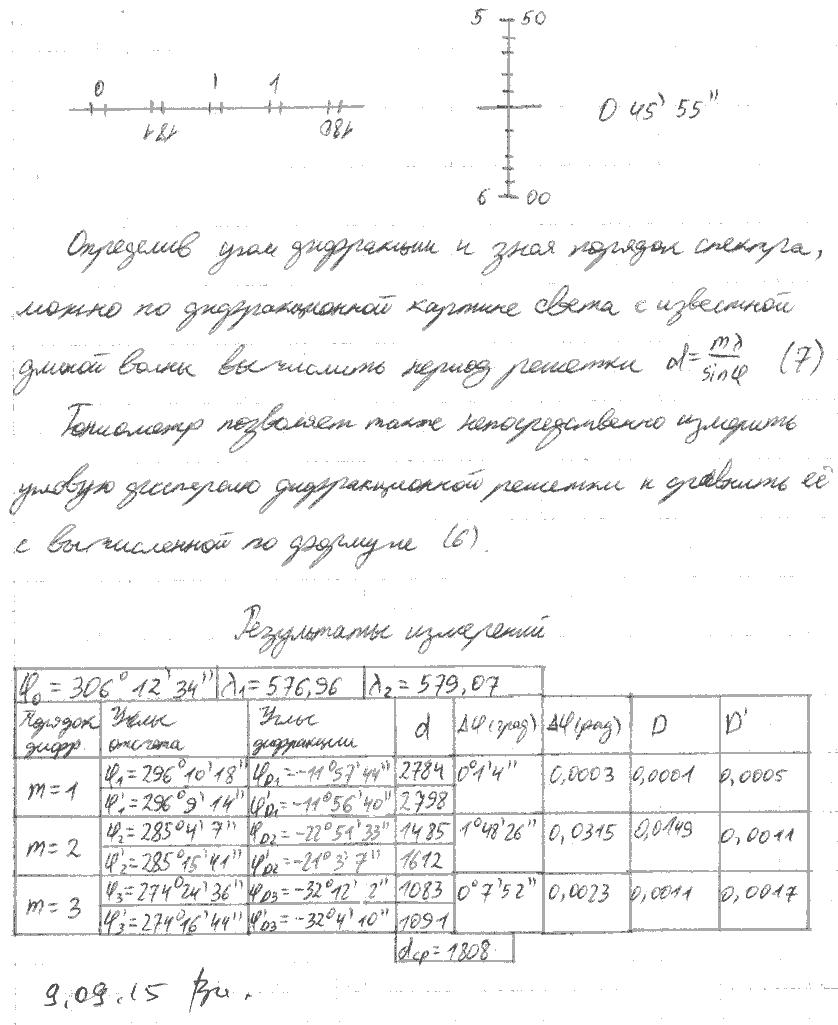 5 50
0 1 1
181 180
0 45' 55"
6 00
Определив угол дифракции и зная порядок спектра,
можно по дифракционной картине света с известной
длиной волны вычислить период решетки d = mλ/sinφ (7)
Гониометр позволяет также непосредственно измерить
угловую дисперсию дифракционной решетки и сравнить её
с вычисленной по формуле (6).
Результаты измерений
φ₀ = 306° 12' 34" λ₁ = 576,96 λ₂ = 579,07
Порядок дифр. Углы отсчета Углы дифракции d Δφ(град) Δφ(рад) D D'
m = 1 φ₁ = 296° 10' 18" φD1 = -11° 57' 44" 2784 0° 1' 4" 0,0003 0,0001 0,0005
φ'₁ = 296° 9' 14" φ'D1 = -11° 56' 40" 2798
m = 2 φ₂ = 285° 4' 7" φD2 = -22° 51' 33" 1485 1° 48' 26" 0,0315 0,0149 0,0011
φ'₂ = 285° 15' 41" φ'D2 = -21° 3' 7" 1612
m = 3 φ₃ = 274° 24' 36" φD3 = -32° 12' 2" 1083 0° 7' 52" 0,0023 0,0011 0,0017
φ'₃ = 274° 16' 44" φ'D3 = -32° 4' 10" 1091
dср = 1808
9.09.15